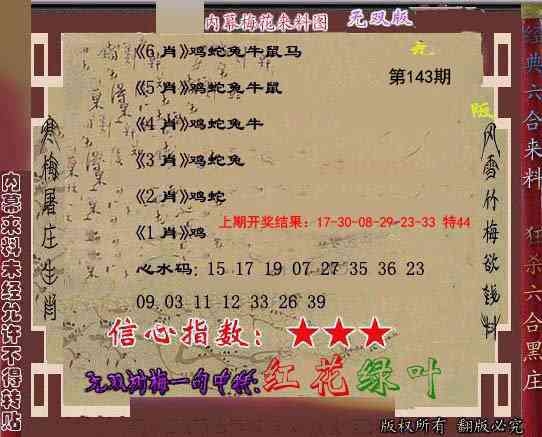 内幕梅花来料图 无双版
《6 肖》鸡蛇兔牛鼠马
第143期
《5 肖》鸡蛇兔牛鼠
《4 肖》鸡蛇兔牛
《3 肖》鸡蛇兔
《2 肖》鸡蛇
上期开奖结果：17-30-08-29-23-33 特44
《1 肖》鸡
心水码: 15 17 19 07 27 35 36 23
09 03 11 12 33 26 39
信心指数：★★★
红花绿叶
版权所有 翻版必究
经典六合来料
狂杀六合黑庄
风雪竹梅欲钱料
寒梅屠庄生肖
内幕来料未经允许不得转贴